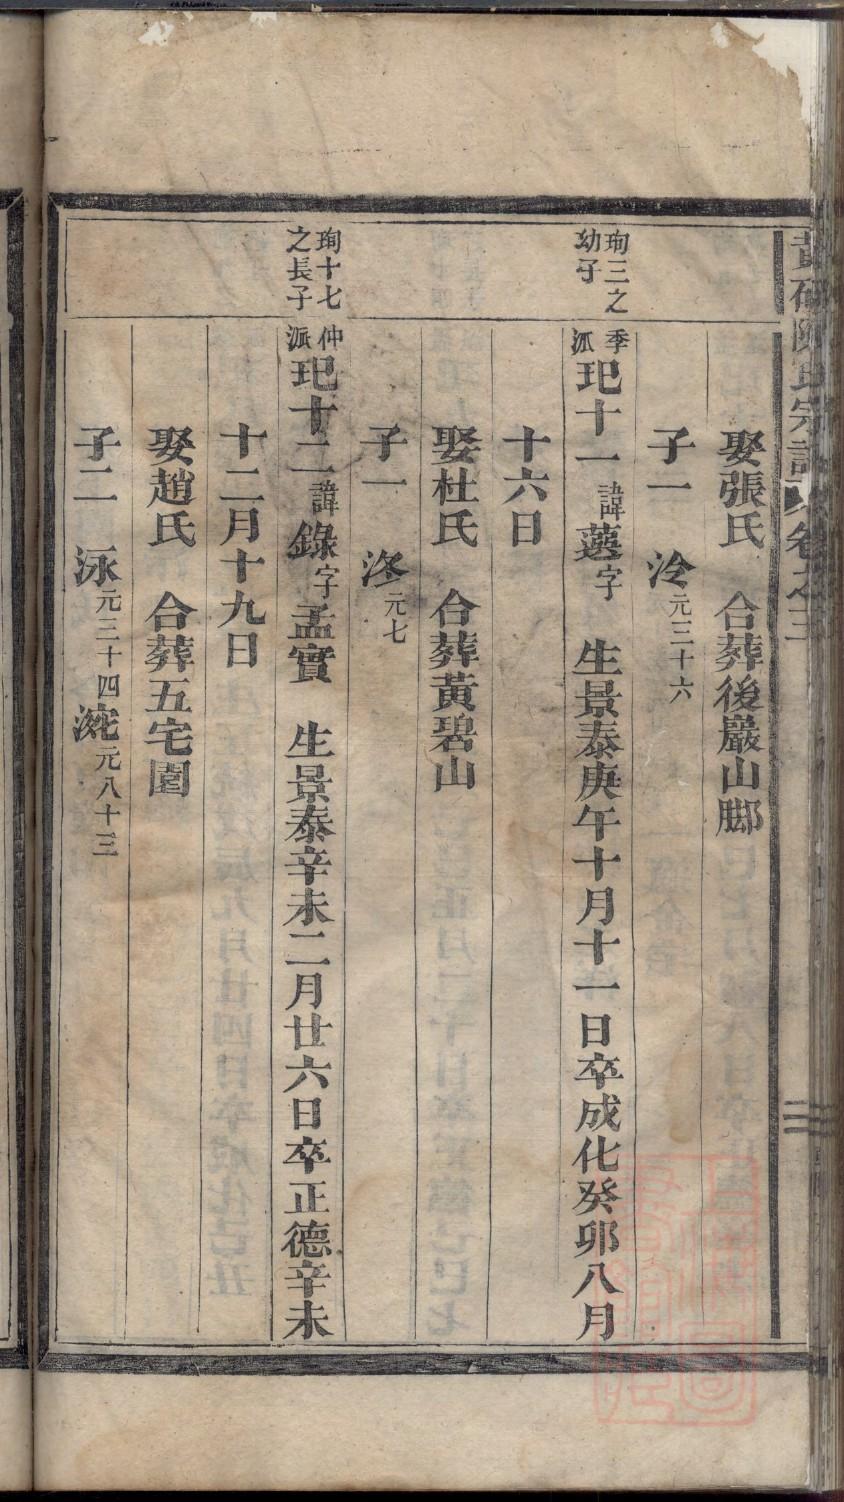 陳氏宗譜 卷之三
娶張氏 合葬後巖山脚
子一 泠元三十六
珣三之幼子
季派玘十一諱藻字 生景泰庚午十月十一日卒成化癸卯八月
十六日
娶杜氏 合葬黃碧山
子一 洛元七
珣十七之長子
仲派玘十二諱錄字孟實 生景泰辛未二月廿六日卒正德辛未
十二月十九日
娶趙氏 合葬五宅園
子二 泳元三十四 元八十三